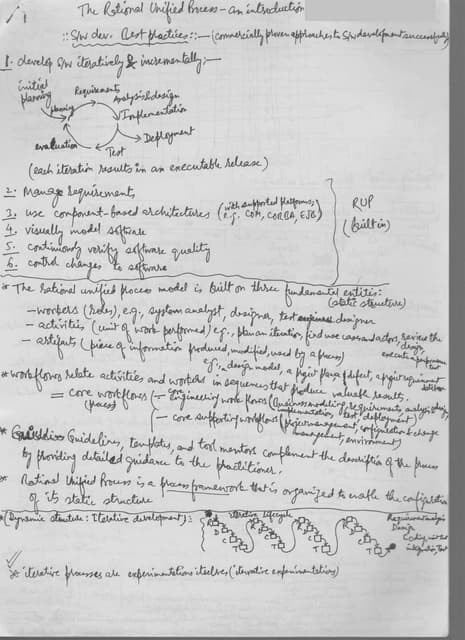 1
The Rational Unified Process - an introduction
:: S/w dev. Best practices :: - (commercially proven approaches to S/w development successfully)
1. develop S/w iteratively & incrementally :-
initial planning
planning
Requirements
Analysis & design
Implementation
Deployment
Test
evaluation
(each iteration results in an executable release)
2. Manage Requirements
3. use component-based architectures (with supported platforms, e.g. COM, CORBA, EJB)
4. visually model software
5. continuously verify software quality
6. control changes to software
RUP
(built in)
* The rational unified process model is built on three fundamental entities:
(static structure)
- workers (roles), e.g., system analyst, designer, test designer
- activities (unit of work performed) e.g., plan an iteration, find use cases and actors, review the design, execute a performance test
- artifacts (piece of information produced, modified, used by a process)
e.g., a design model, a project
* workflows relate activities and workers in sequences that produce valuable results.
= core workflows
(process)
- core Engineering workflows (business modeling, requirements, analysis & design, implementation, test, deployment)
- core supporting workflows (project management, configuration & change management, environment)
* Guidelines, templates, and tool mentors complement the description of the process
by providing detailed guidance to the practitioner.
* Rational Unified Process is a process framework that is organized to enable the configuration
of its static structure
* (Dynamic structure: Iterative development) ::
iterative lifecycle
R D C T
R D C T
R D C T
R D C T
Requirements analysis
Design
Coding, unit test
integration, test
* iterative processes are experimentations itselves, (iterative experimentations)